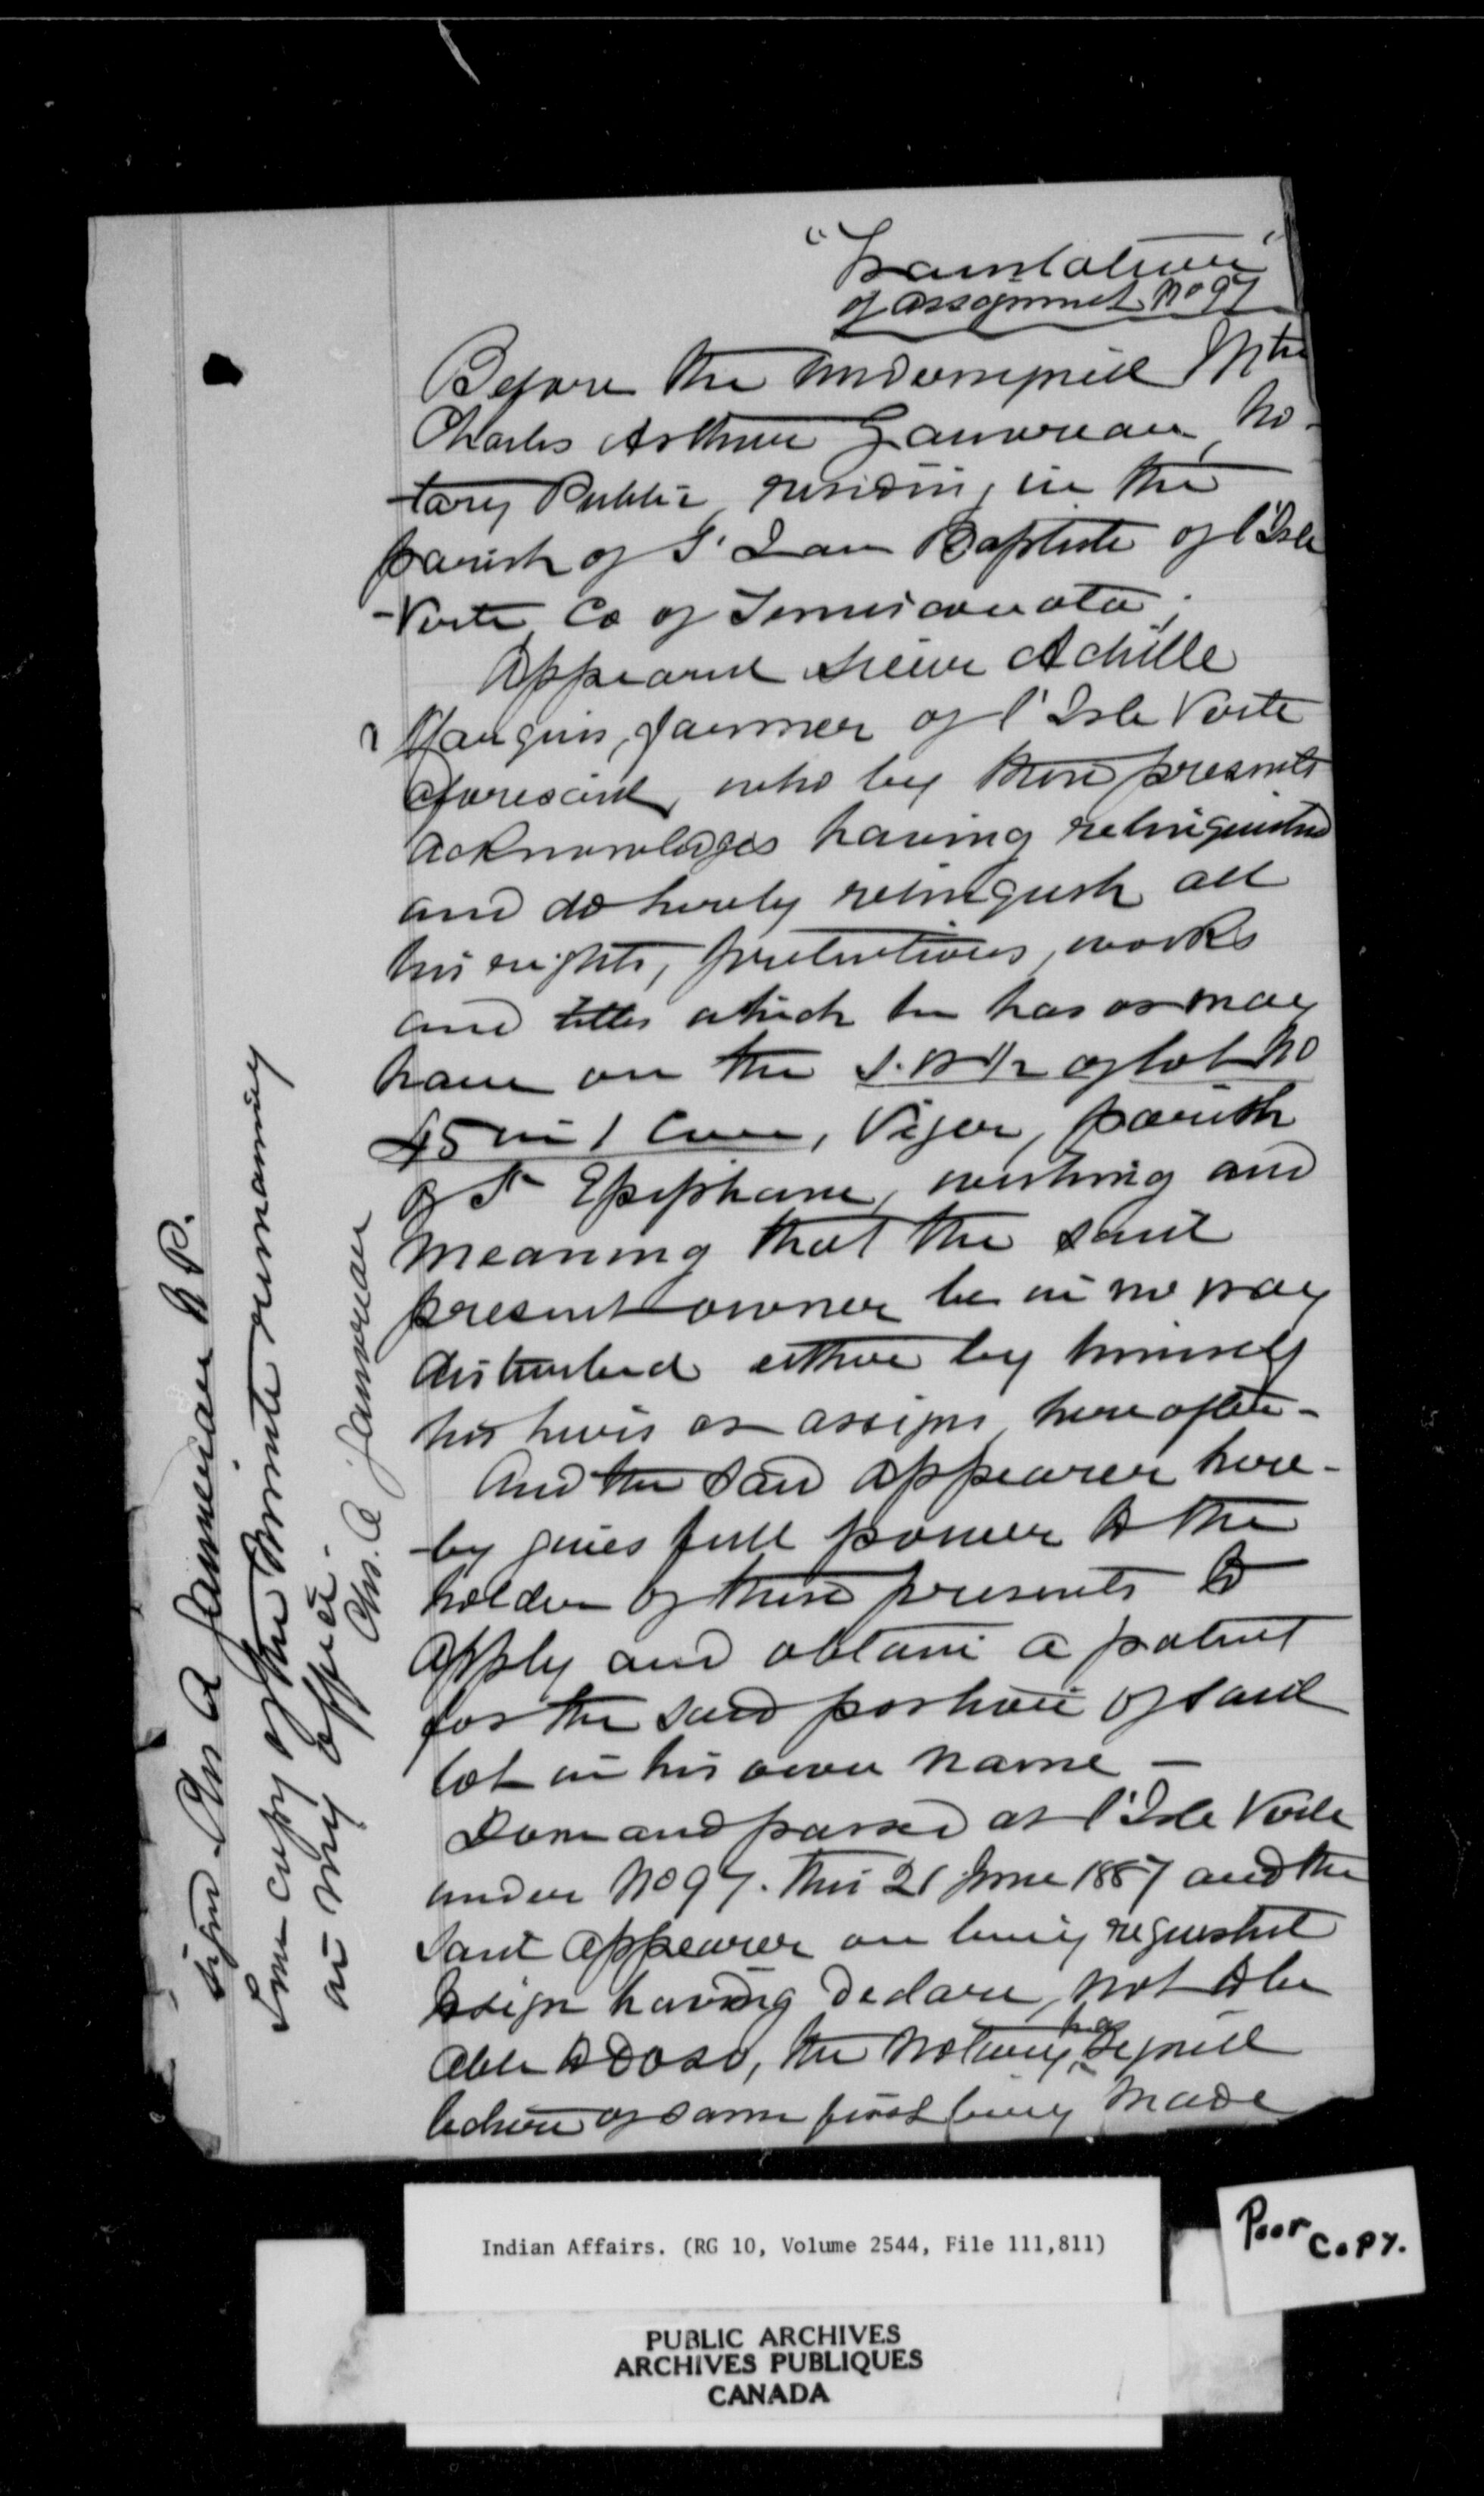 "Translation"
of assignment No 97
Before the undersigned Mtre
Charles Arthur Gauvreau, No-
-tary Public, residing in the
parish of St Jean Baptiste of l'Isle
-Verte Co of Temiscouata;
Appeared sieur Achille
farmer of l'Isle Verte
aforesaid, who by these presents
acknowledges having relinquished
and do hereby relinquish all
his rights, pretentions, works
and titles which he has or may
have on the S.W 1/2 of lot No
45 in 1 Conc, Viger, parish
of St Epiphane, wishing and
meaning that the said
present owner be in no way
disturbed either by himself
his heirs or assigns hereafter -
And the said appearer here-
-by gives full power to the
holder of these presents to
apply and obtain a patent
for the said portion of said
lot in his own name -
Done and passed at l'Isle Verte
under No 97. this 21 June 1887 and the
said appearer on being requested
to sign having declare, not to be
able to do so, the notary has signed
lecture of same first being made
signed Chs A Gauvreau N.P.
True copy of the minute remaining
in my office.
Chs. A Gauvreau
Indian Affairs. (RG 10, Volume 2544, File 111,811)
Poor
Copy.
PUBLIC ARCHIVES
ARCHIVES PUBLIQUES
CANADA